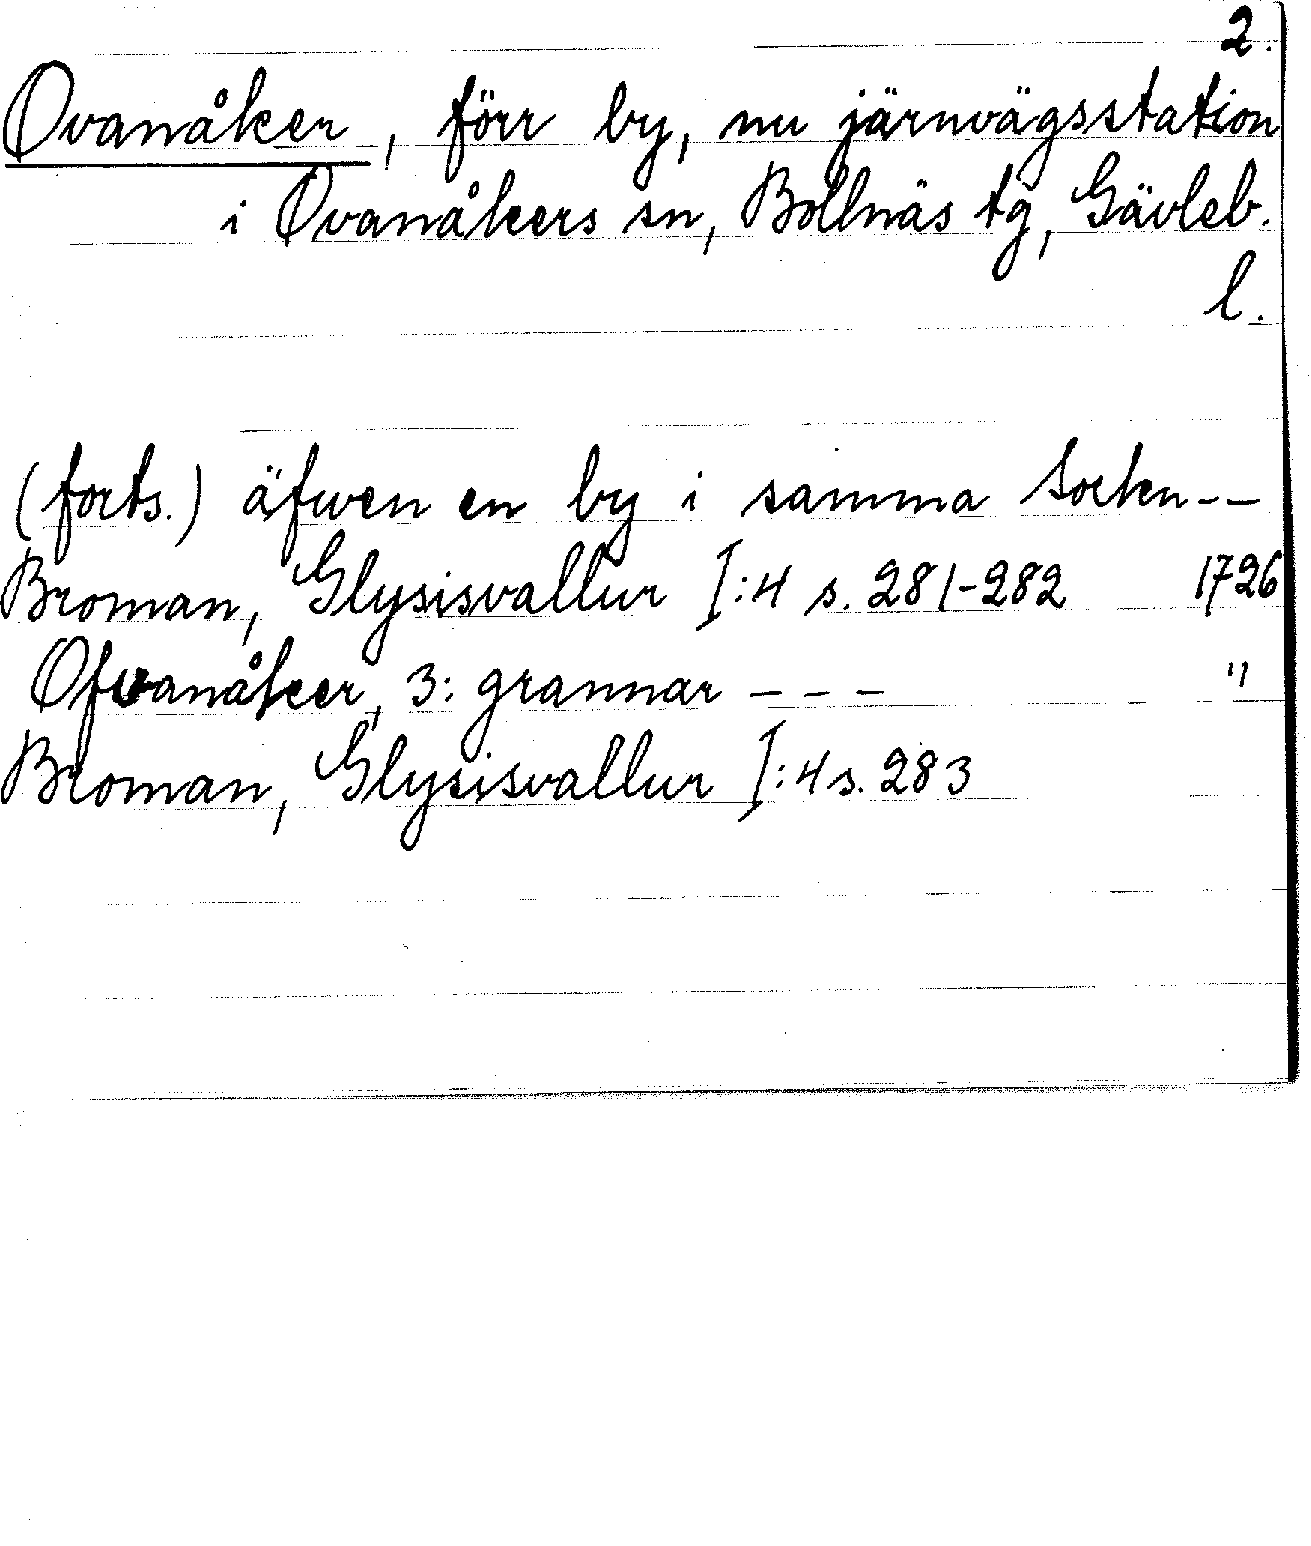 2.
Ovanåker, förr by, nu järnvägsstation
i Ovanåkers sn, Bollnäs tg, Gävleb.
l.
(forts.) äfwen en by i samma Sockn--
Broman, Glysisvallur I:4 s. 281-282 1726
Ofvanåker, 3: grannar --- "
Broman, Glysisvallur I:4 s. 283